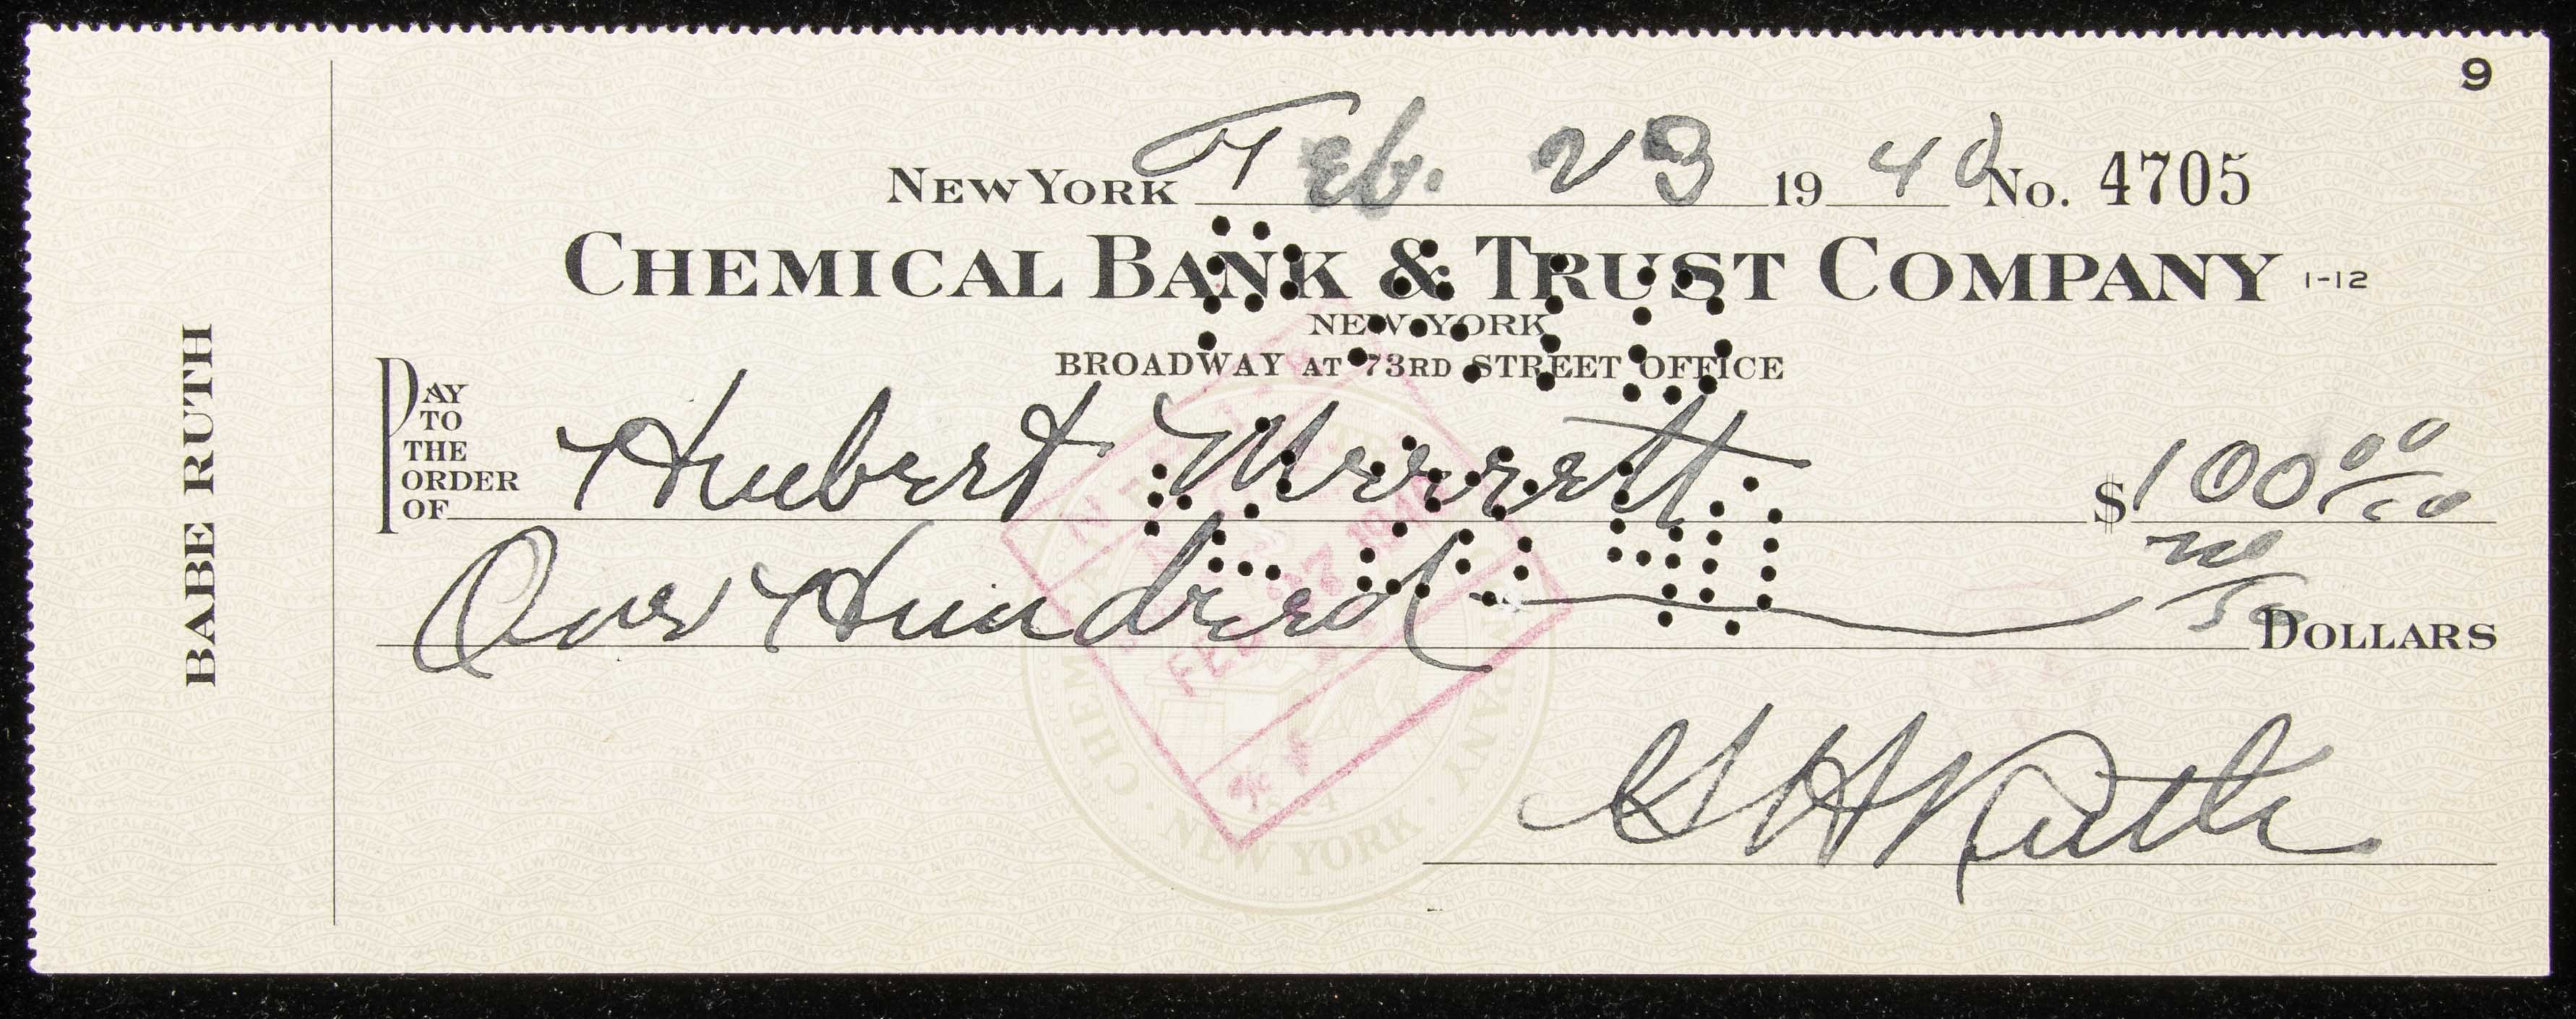 9
New York Feb. 23 19 40 No. 4705
Chemical Bank & Trust Company 1-12
New York
Broadway at 73rd Street Office
Pay to the order of Hubert Merrett $100 00/00
One Hundred no/00 Dollars
G H Ruth
BABE RUTH
PAID
FEB 27 1940
CHEMICAL BANK & TRUST COMPANY · NEW YORK ·